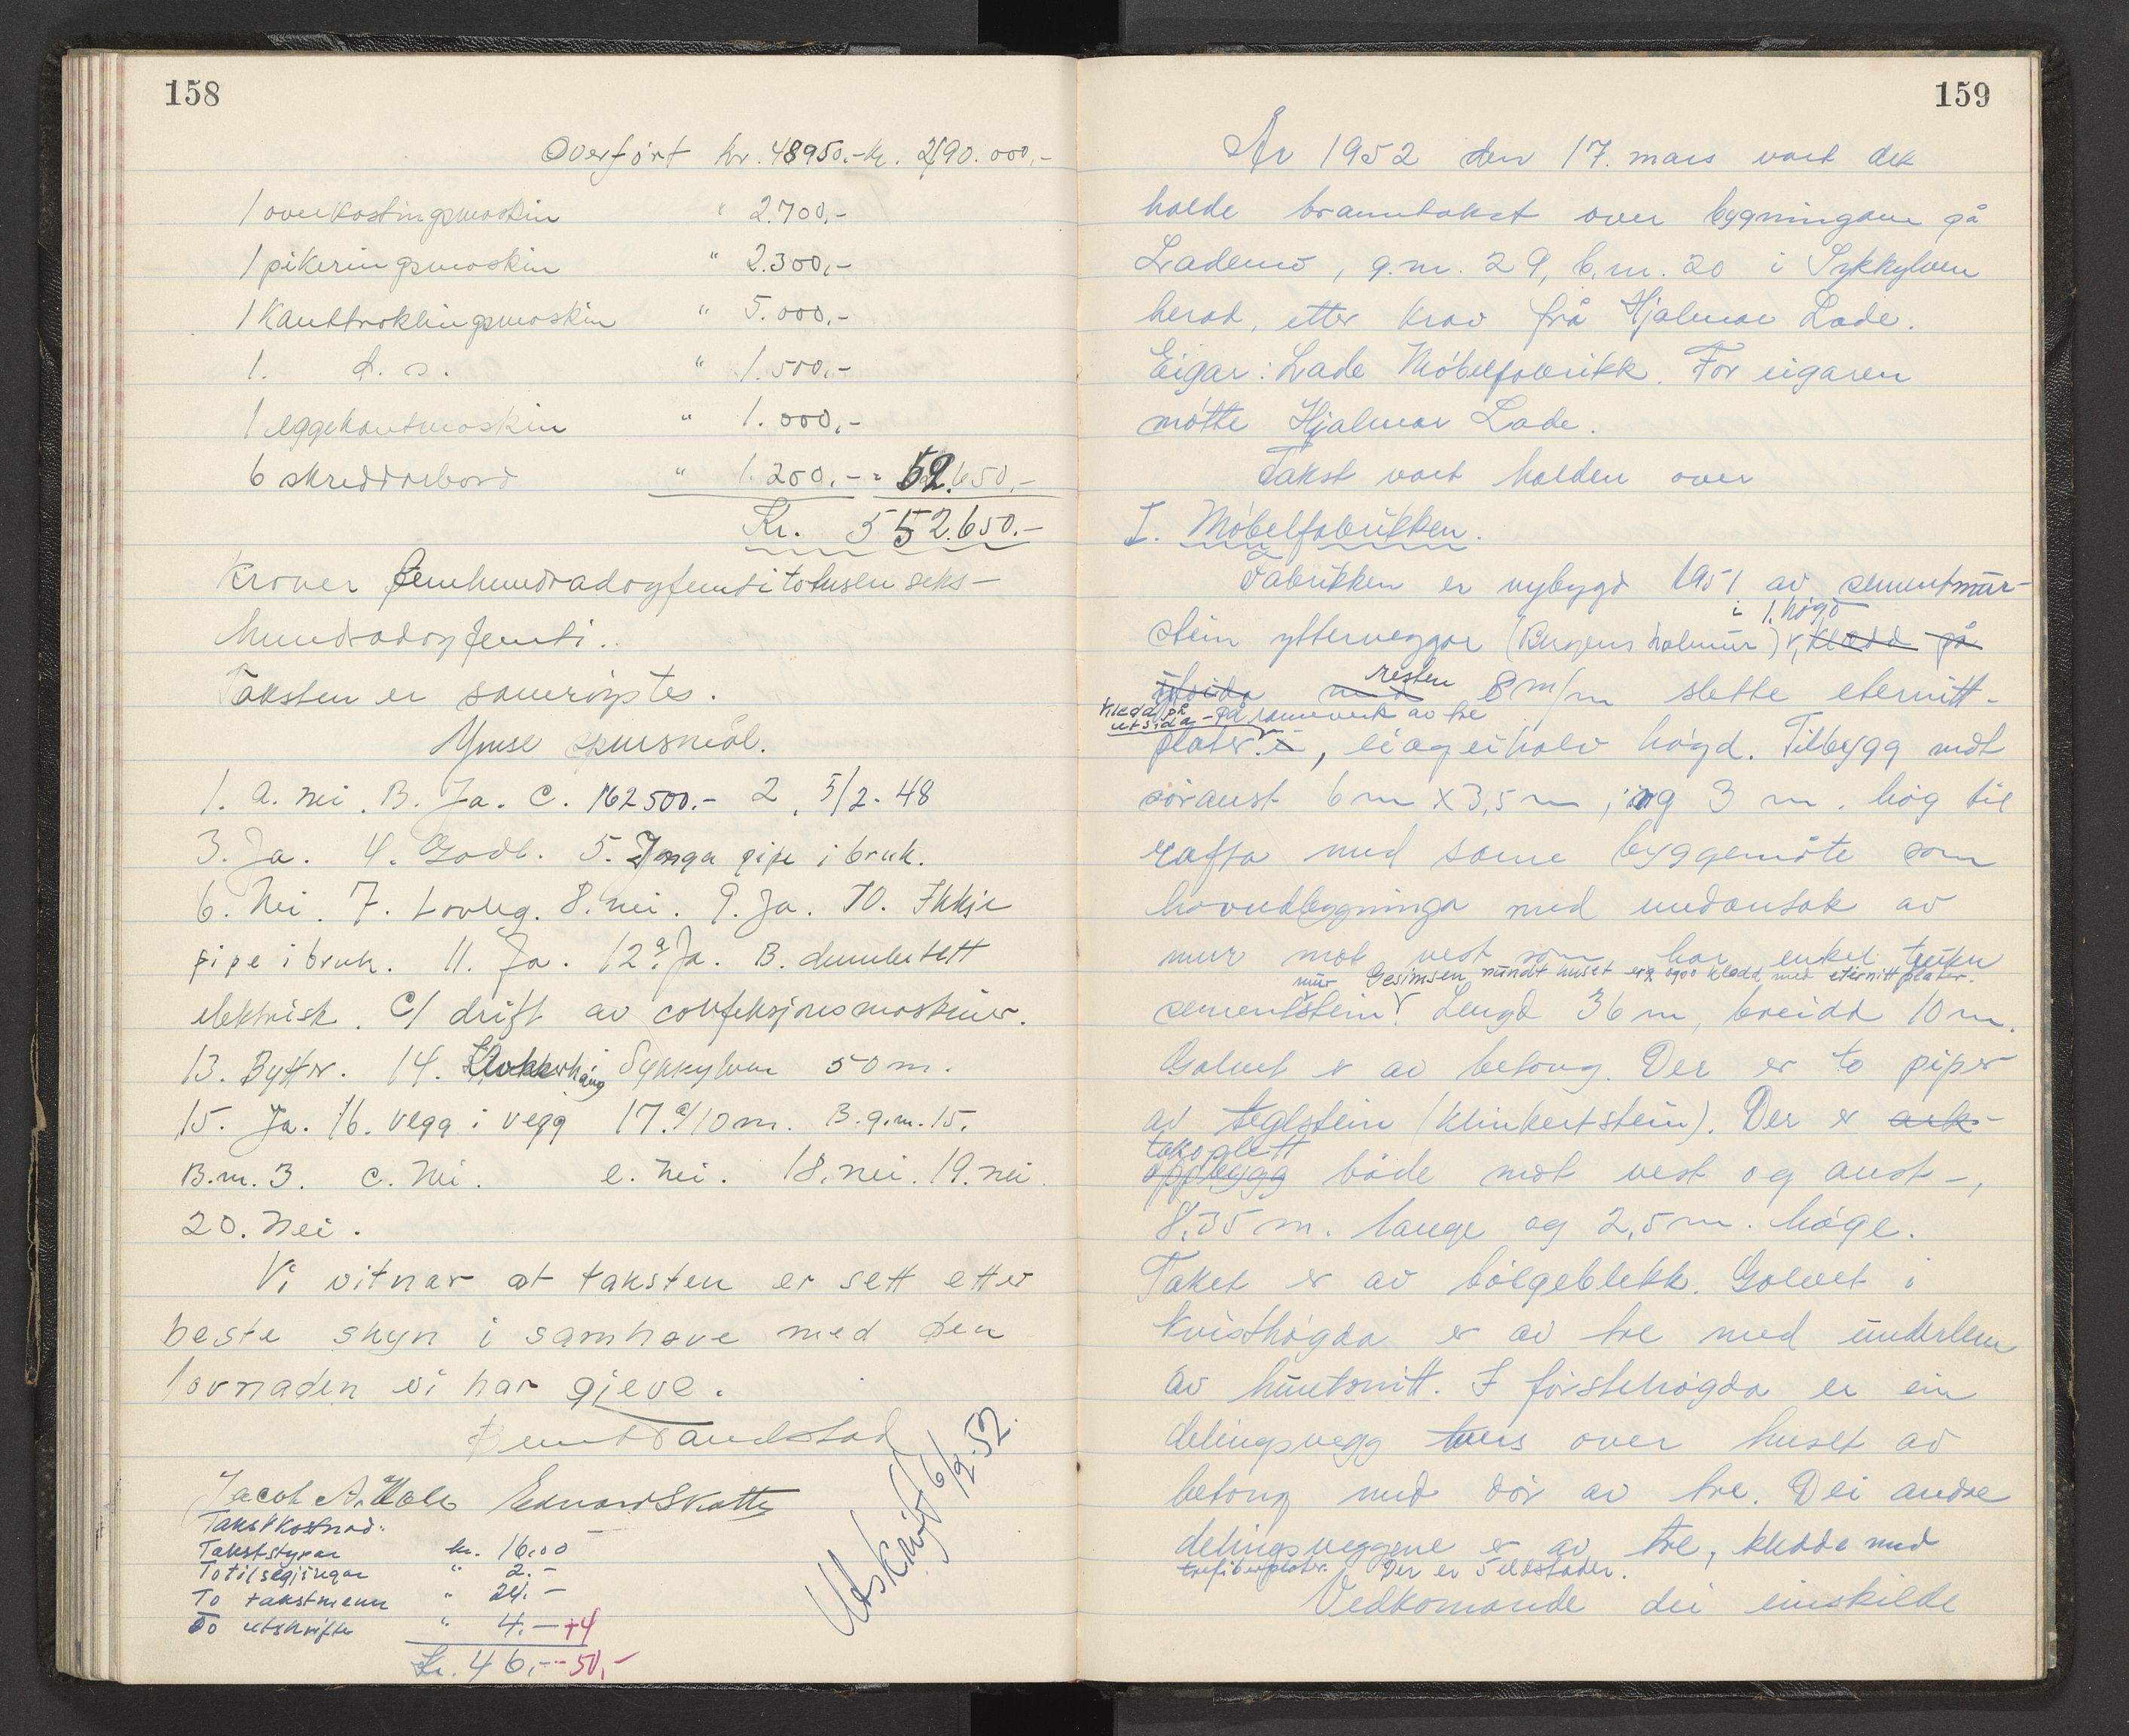 158
Overført kr. 48950.- kr. 490.000,-
1 overkastingsmaskin " 2.700,-
1 pikeringsmaskin " 2.300,-
1 Kanttråklingsmaskin " 5.000,-
1. d. s. " 1.500,-
1 eggekantmaskin " 1.000,-
6 skreddarbord " 1.200,- = 62.650,-
Kr. 552.650.-
Kroner femhundradogfemtitotusen seks-
hundradogfemti.
Taksten er samrøystes.
Ymse spursmål.
1. a. Nei. B. Ja. C. 162500.- 2. 5/2-48
3. Ja. 4. Godt. 5. Inga pipe i bruk.
6. Nei. 7. Lovleg. 8. nei. 9. Ja. 10. Ikkje
pipe i bruk. 11. Ja. 12 a. Ja. B. dunlutett
elektrisk. C/ drift av confeksjonsmaskiner.
13. Bytter. 14. Sykkylven 50 m.
15. Ja. 16. vegg i vegg 17. a/ 10 m. B. g.m. 15.
B.m. 3. C. Nei. e. Nei. 18. nei. 19. nei.
20. Nei.
Vi vitnar at taksten er sett etter
beste skyn i samhøve med den
lovnaden vi har gjeve.
Bernt Tandstad
Jacob A. Hole Edvard Skotte
Utskrift 6/2-52
Takstkostnad:
Takststyrar kr. 16.00
To tilsegjingar " 2.-
To takstmenn " 24.-
To utskrifter " 4.- +4
Kr. 46,- - 50,-
159
År 1952 den 17. mars vart det
halde branntakst over bygningane på
Lademo, g.nr. 29, b.nr. 20 i Sykkylven
herad, etter krav frå Hjalmar Lade.
Eigar: Lade Møbelfabrikk. For eigaren
møtte Hjalmar Lade.
Takst vart halden over
I. Møbelfabrikken.
Fabrikken er nybygd 1951 av sementmur-
i 1. høgd
stein ytterveggar (Bergens holmur), kledd på
resten
utsida med 8 m/m slette eternitt-
kledd på
utsida - på ramverk av tre
plater., ei og ei halv høgd. Tilbygg mot
søraust 6 m x 3,5 m, og 3 m. høg til
rafta med same byggemåte som
hovudbygninga med undantak av
mur mot vest som har enkel tjukn
mur Gesimsen rundt huset er ogso kledd med eternittplater.
sementstein. Lengd 36 m, breidd 10 m.
Golvet er av betong. Der er to piper
av teglstein (klinkertstein). Der er ark-
takoplett
oppbygg både mot vest og aust -,
8.35 m. lange og 2,5 m. høge.
Taket er av bølgeblekk. Golvet i
kvisthøgda er av tre med underlem
av huntonitt. I førstehøgda er ein
delingsvegg tvers over huset av
betong med dør av tre. Dei andre
delingsveggene er av tre, kledde med
trefiberplater. Der er 5 eldstader.
Vedkomande dei einskilde